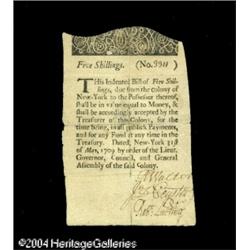 Five Shillings. (No. 9911
THis Indented Bill of Five Shil-
lings, due from the Colony of
New-York to the Possessor thereof,
shall be in value equal to Money, &
shall be accordingly accepted by the
Treasurer of this Colony, for the
time being, in all publick Payments,
and for any Fund at any Time in
the Treasury. Dated, New-York 31st
of May, 1709 by order of the Lieut.
Governor, Council, and General
Assembly of the said Colony.
©2004 HeritageGalleries